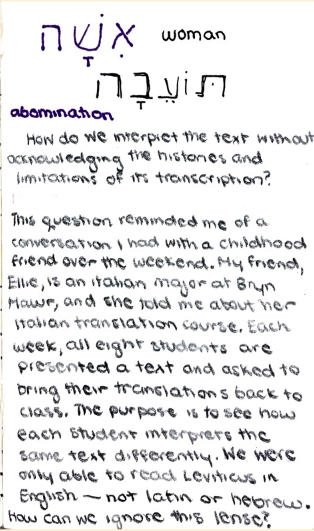 אִשָּׁה woman
תּוֹעֵבָה
abomination
How do we interpret the text without
acknowledging the histories and
limitations of its transcription?
This question reminded me of a
conversation I had with a childhood
friend over the weekend. My friend,
Ellie, is an italian major at Bryn
Mawr, and she told me about her
italian translation course. Each
week, all eight students are
presented a text and asked to
bring their translations back to
class. The purpose is to see how
each student interprets the
same text differently. We were
only able to read Leviticus in
English — not latin or hebrew.
How can we ignore this lense?